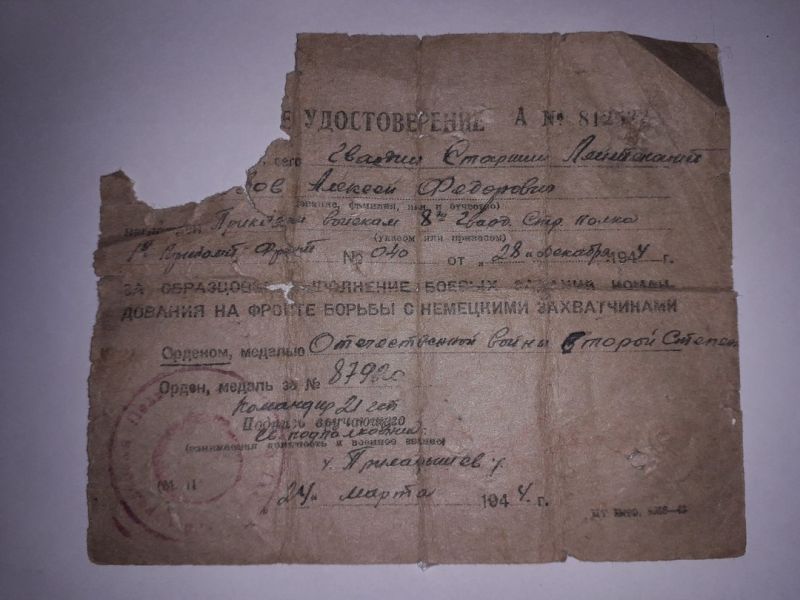 Е УДОСТОВЕРЕНИЕ А № 812
сего Гвардии Старший Лейтенант
ов Алексей Федорович
(звание, фамилия, имя и отчество)
Приказом войскам 8й Гвад. Стр. полка
(указом или приказом)
1й Прибалт. Фронт № 040 от „28" декабря 1944 г.
ЗА ОБРАЗЦОВОЕ ВЫПОЛНЕНИЕ БОЕВЫХ ЗАДАНИЙ КОМАН-
ДОВАНИЯ НА ФРОНТЕ БОРЬБЫ С НЕМЕЦКИМИ ЗАХВАТЧИКАМИ
Орденом, медалью Отечественной войны Второй Степен
Орден, медаль за № 87920
Командир 21 гсп
Подпись вручающего
гв. подполковник
(занимаемая должность и воинское звание)
24 марта 1944 г.